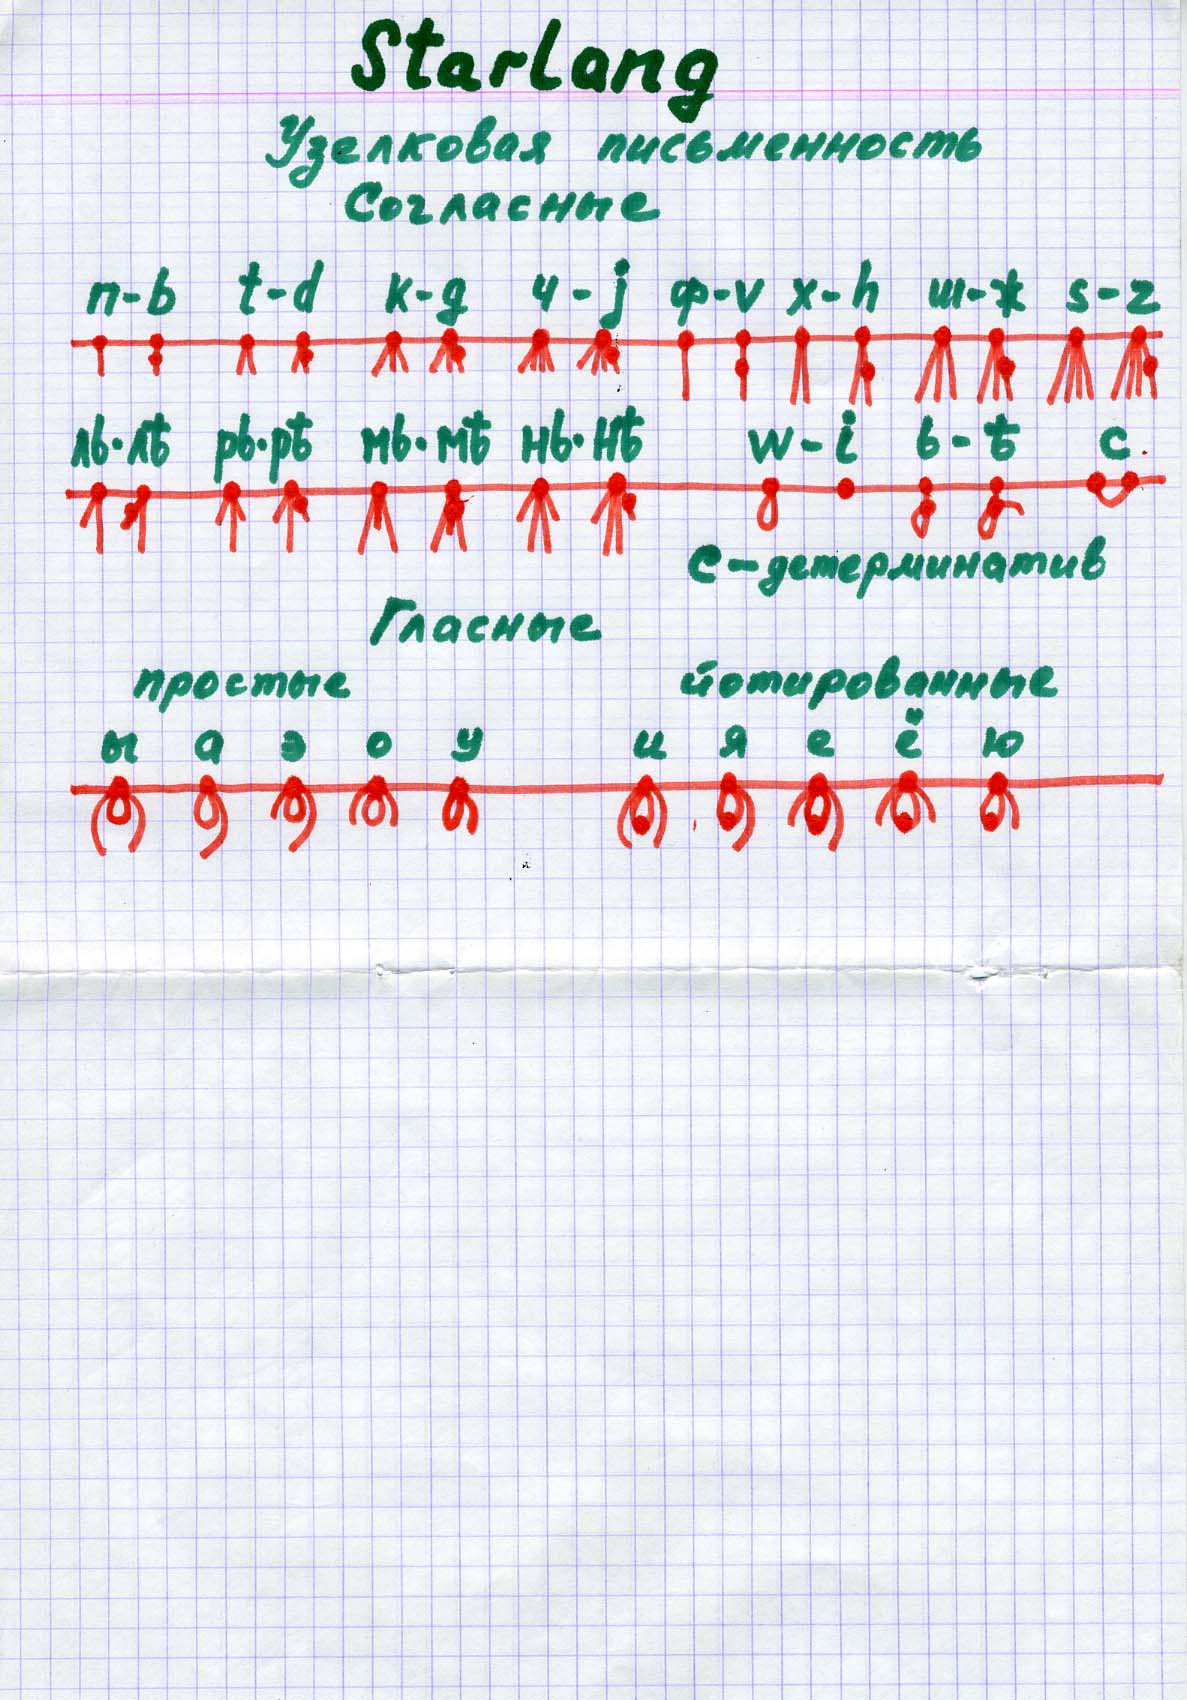 Starlang
Узелковая письменность
Согласные
п-b t-d к-g ч-j ф-v х-h ш-ж s-z
ль·лѣ рь·рѣ мь·мѣ нь·нѣ w-i ь-ѣ с.
с-детерминатив
Гласные
простые йотированные
ы а э о у и я е ё ю